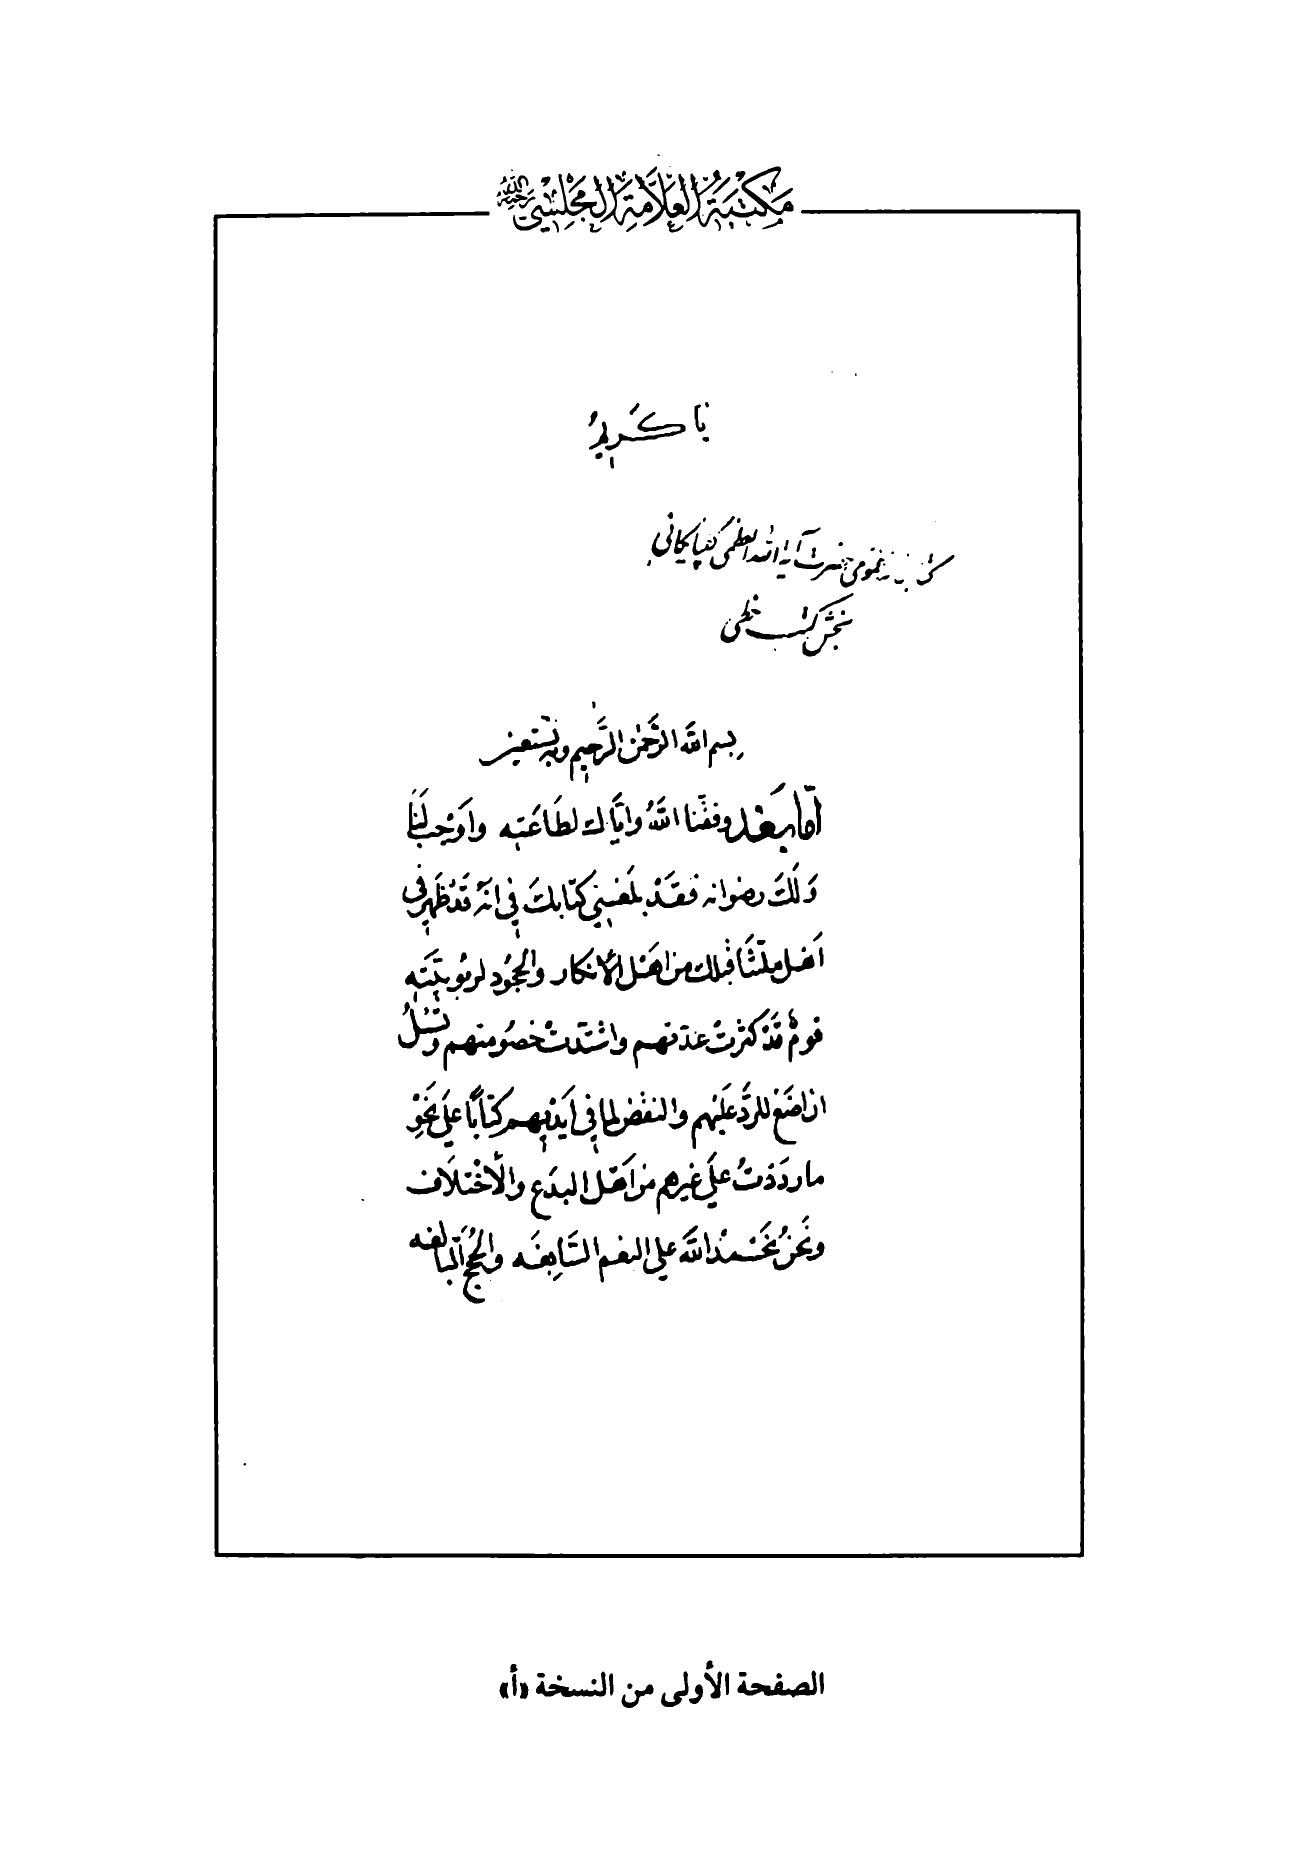 مكتبة العلّامة المجلسي رحمه الله
يا كَريمُ
كتابخانه عمومى حضرت آية الله العظمى گلپايگانى
بخش كتب خطى
بسم الله الرَّحمن الرَّحيم وبه نستعين
امّا بَعْد وفقنا اللهُ وايّاك لطَاعَتِه وَاَوْجبَ لَنا
وَلكَ رضوانه فقَدْ بلغني كتابكَ في انّه قَدْ ظهَر في
اَهل ملّتنَا قبلك من اهْل الأنكار والجحُود لربُوبيّتَه
قومٌ قدْ كثرتْ عدّتهم واشتدّتْ خصُومتهم وتَسْئلُ
ان اضَعَ للردّ عَلَيْهم والنقض لما في اَيْديهم كتابًا علي نَحْوِ
ما ردَدْتُ علي غيرهم من اَهل البدَع والأخْتلَاف
ونَحنُ نَحمدُ اللهَ علي النعم السَّابغَه والحُجج البَالغه
الصفحة الأولى من النسخة «أ»